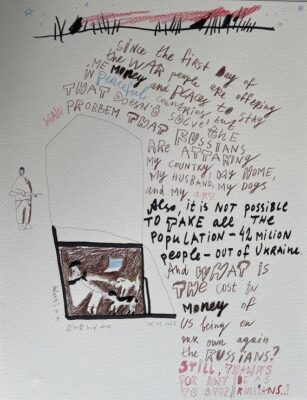 SINCE the FIRST DAY of
the WAR people are offering
ME MONEY and PLACES to STAY
IN Peaceful countries but
THAT DOESN'T SOLVE the
MAIN PROBLEM THAT
RUSSIANS
ARE ATTAKING
MY COUNTRY, MY HOME,
MY HUSBAND, MY DOGS
and MY
Also, it is NOT possible
TO TAKE all THE
POPULATION - 42 MILION
people - OUT OF UKRAINE
And WHAT is
THE COST IN
MONEY OF
US being on
our own again
the RUSSIANS?
STILL, THANKS
FOR ANY IDEAS
TO STOP RUSSIANS..!